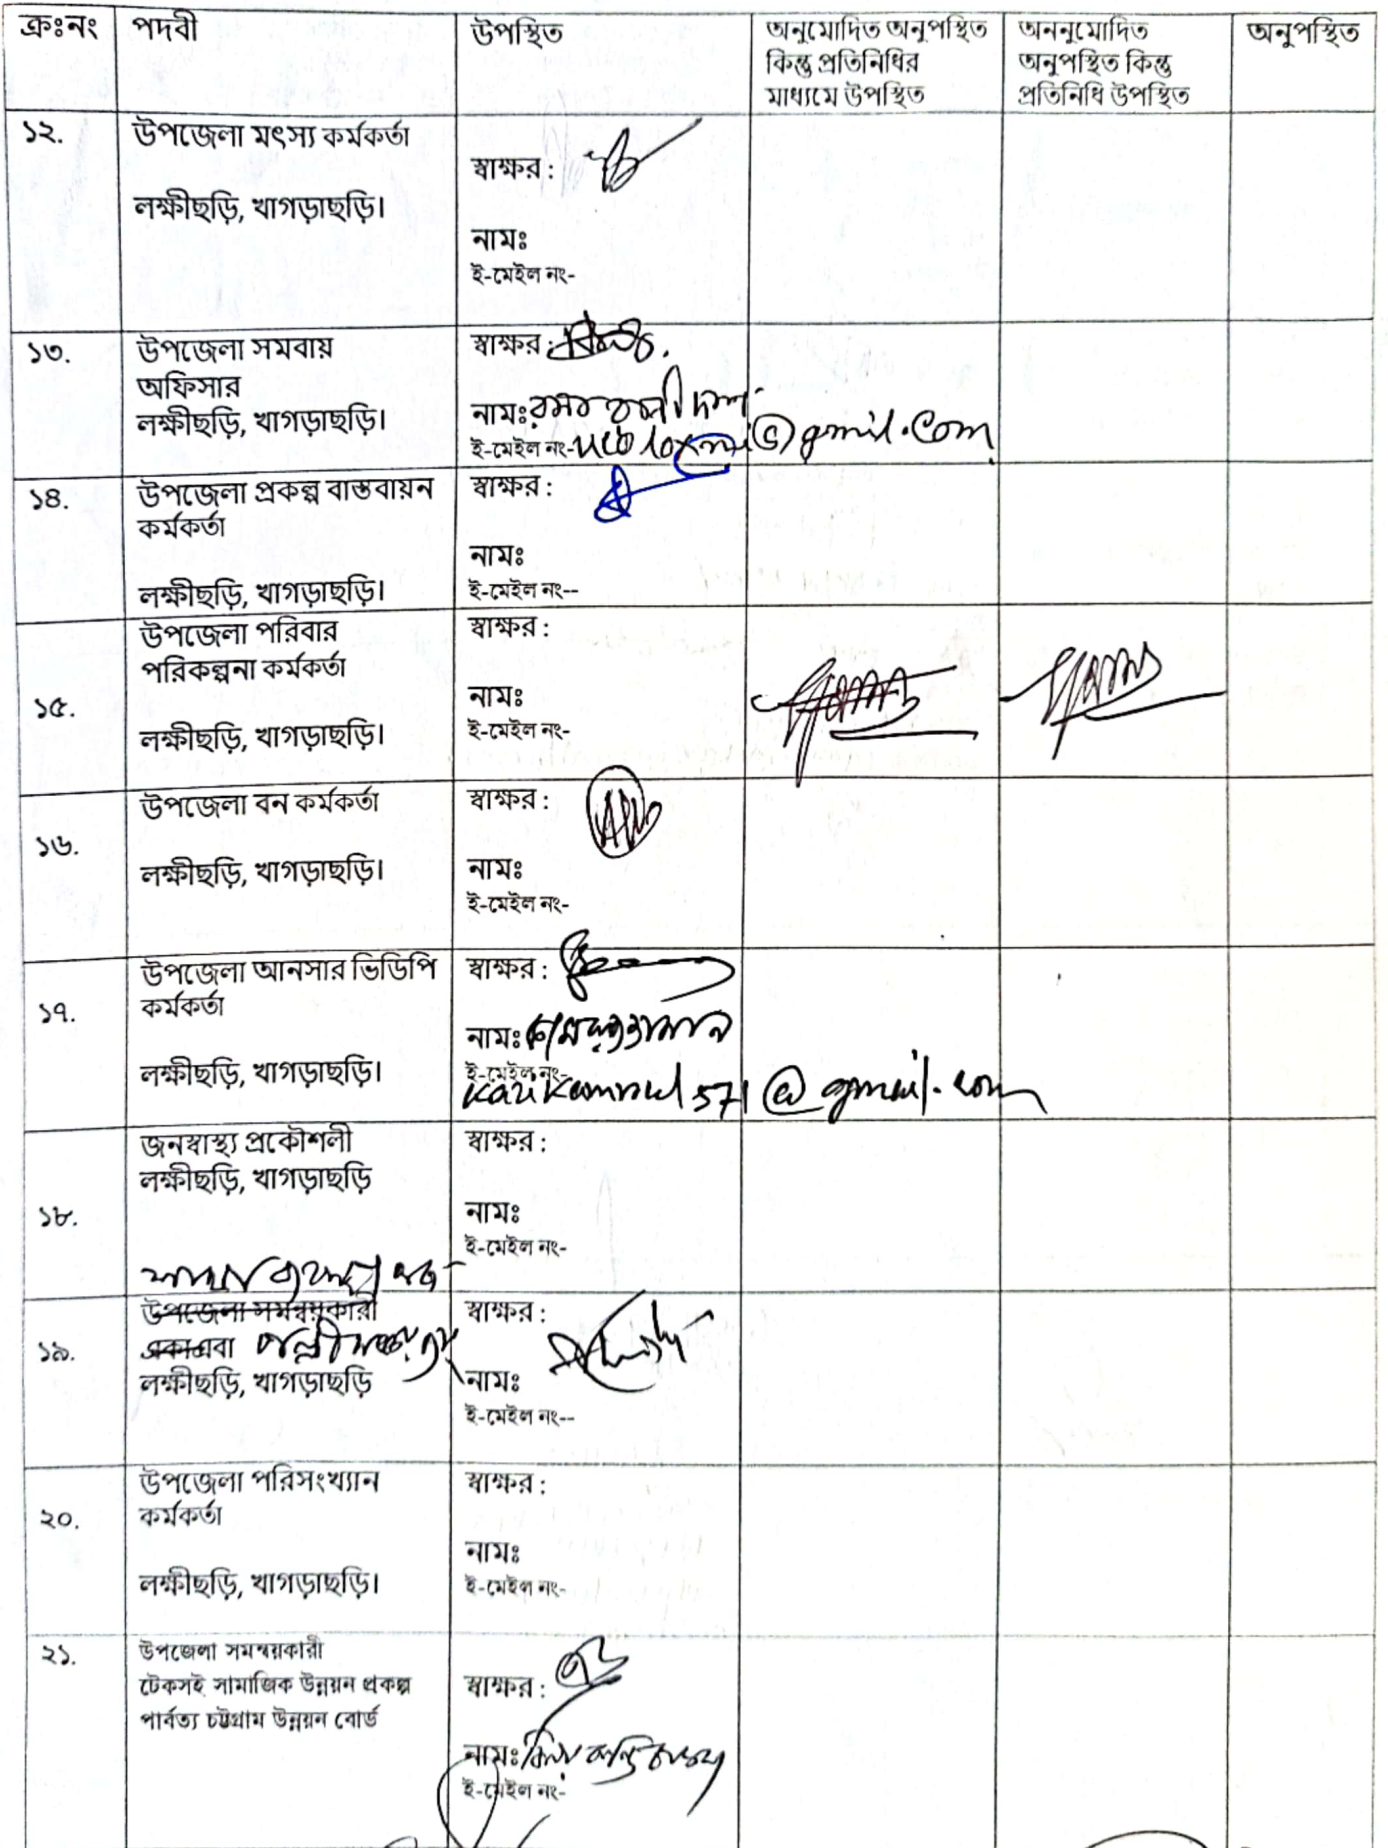 ক্রঃনং পদবী উপস্থিত অনুমোদিত অনুপস্থিত কিন্তু প্রতিনিধির মাধ্যমে উপস্থিত অননুমোদিত অনুপস্থিত কিন্তু প্রতিনিধি উপস্থিত অনুপস্থিত
১২. উপজেলা মৎস্য কর্মকর্তা
লক্ষীছড়ি, খাগড়াছড়ি।
স্বাক্ষর :
নামঃ
ই-মেইল নং-
১৩. উপজেলা সমবায়
অফিসার
লক্ষীছড়ি, খাগড়াছড়ি।
স্বাক্ষর :
নামঃ
ই-মেইল নং- ucoloxmi@gmil.com
১৪. উপজেলা প্রকল্প বাস্তবায়ন
কর্মকর্তা
লক্ষীছড়ি, খাগড়াছড়ি।
স্বাক্ষর :
নামঃ
ই-মেইল নং--
১৫. উপজেলা পরিবার
পরিকল্পনা কর্মকর্তা
লক্ষীছড়ি, খাগড়াছড়ি।
স্বাক্ষর :
নামঃ
ই-মেইল নং-
১৬. উপজেলা বন কর্মকর্তা
লক্ষীছড়ি, খাগড়াছড়ি।
স্বাক্ষর :
নামঃ
ই-মেইল নং-
১৭. উপজেলা আনসার ভিডিপি
কর্মকর্তা
লক্ষীছড়ি, খাগড়াছড়ি।
স্বাক্ষর :
নামঃ
ই-মেইল নং-
@gmail.com
১৮. জনস্বাস্থ্য প্রকৌশলী
লক্ষীছড়ি, খাগড়াছড়ি
স্বাক্ষর :
নামঃ
ই-মেইল নং-
১৯. উপজেলা সমন্বয়কারী
একাএবা
লক্ষীছড়ি, খাগড়াছড়ি
স্বাক্ষর :
নামঃ
ই-মেইল নং--
২০. উপজেলা পরিসংখ্যান
কর্মকর্তা
লক্ষীছড়ি, খাগড়াছড়ি।
স্বাক্ষর :
নামঃ
ই-মেইল নং-
২১. উপজেলা সমন্বয়কারী
টেকসই সামাজিক উন্নয়ন প্রকল্প
পার্বত্য চট্টগ্রাম উন্নয়ন বোর্ড
স্বাক্ষর :
নামঃ
ই-মেইল নং-